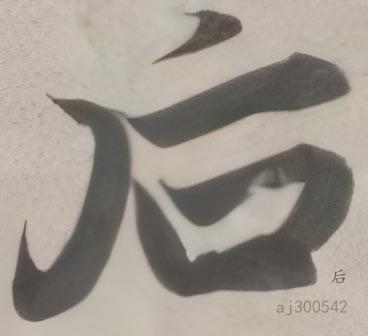 后
后
aj300542